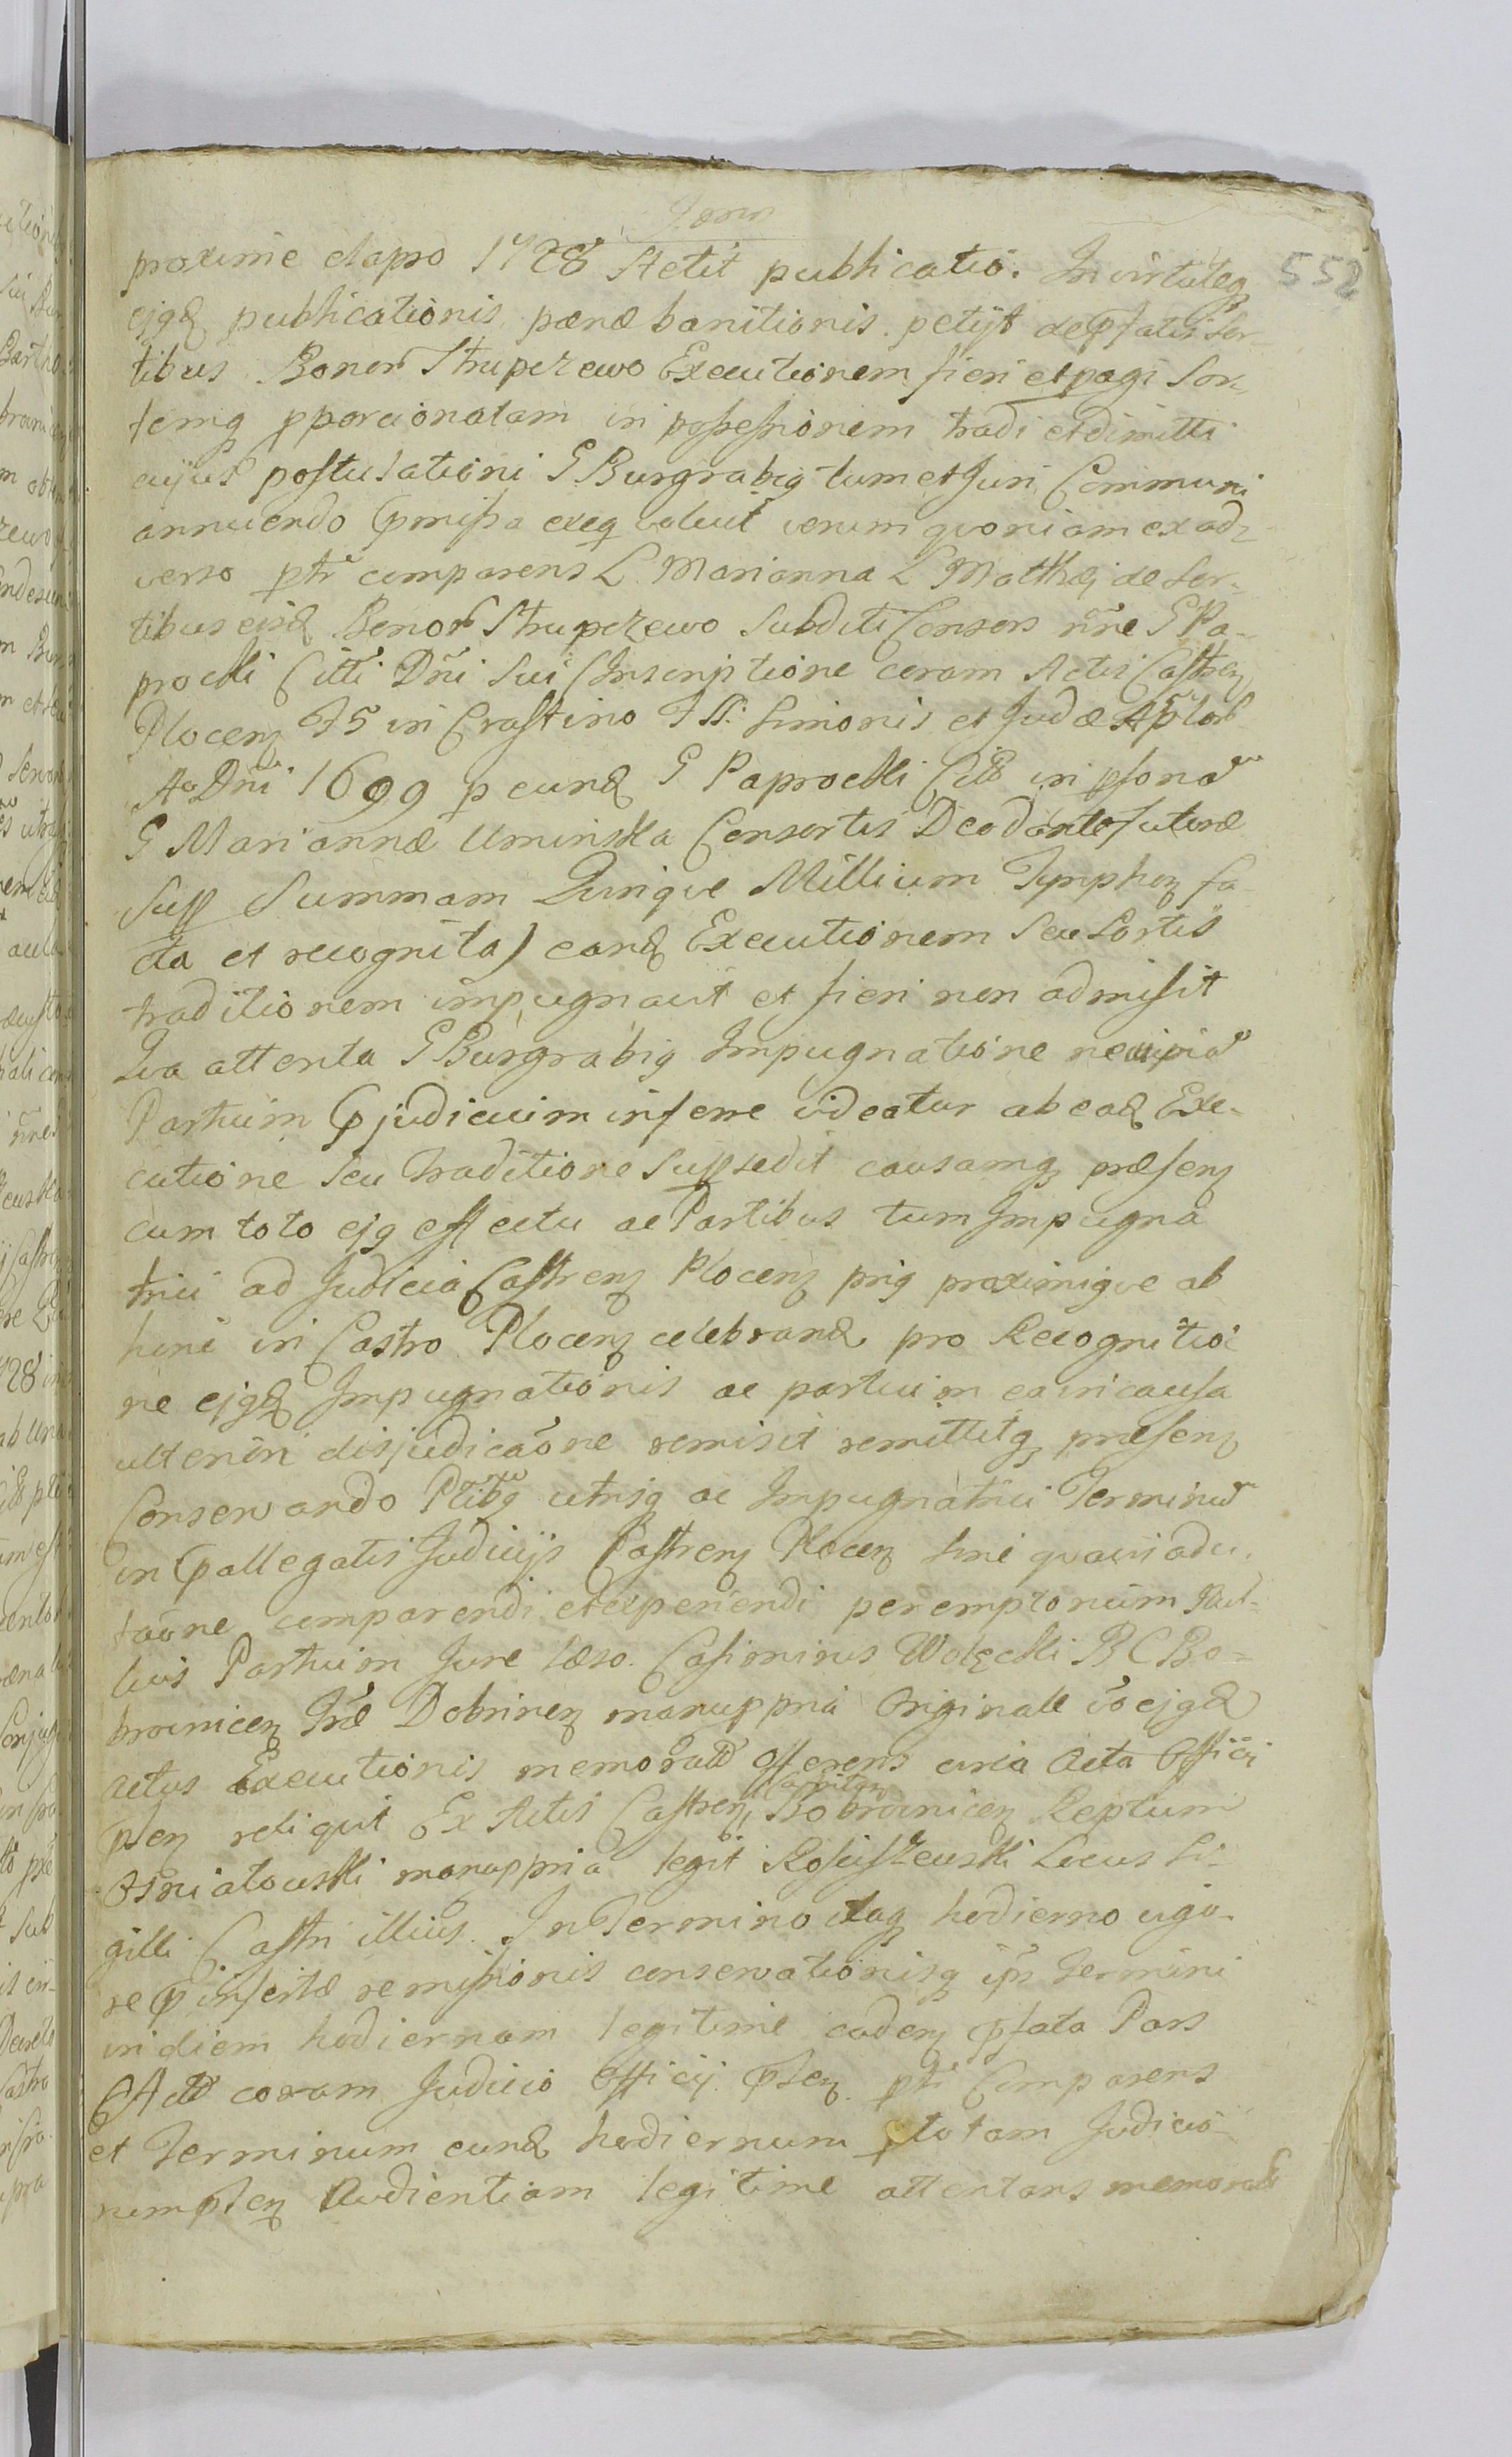 552
proxime elapso 1728 stetit publicatio. In virtuteq
ejqd publicationis pænæ banitionis petijt de pfatis Sor-
tibus Bonor Strupczewo Executionem fieri et pagi Sor-
temq pporcionatam in possessionem tradi et dimitti
cujus postulationi G Burgrabiq tum et Juri Communi
annuendo pmissa exeq voluit verum qvoniam ex ad-
verso ptr comparens L. Marianna L Matthæj de Sor-
tibus eisd Bonor Strupczewo Subditi Consors nre G Pa-
procki Citti Dni Sui (Inscriptione coram Actis Castren
Plocen F5 in Crastino F SS. Simonis et Judæ Aplor
Ao Dni 1699 p eund G Paprocki Citt in psona
G Mariannæ Uminska Consortis Deo dante futuræ
Supp Summam Qvinqve Millium Tymphon fa-
cta et recognita) eand Executionem Seu Sortis
traditionem impugnavit et fieri non admisit
Qva attenta G Burgrabiq Impugnatione ne cuipia
Partium pjudicium inferre videatur ab ead Exe-
cutione Seu Traditione Supsedit causamq præsen
cum toto ejq effectu ac Partibus tum Impugna
trici ad Judicia Castren Plocen priq proximiqve ab
hinc in Castro Plocen celebrand pro Recognitio
ne ejqd Impugnationis ac partium ea in causa
ulteriori disjudicaōne remisit remittitq præsen
Conservando Ptibq utrisq ac Impugnatrici Terminu
in pallegatis Judicijs Castren Plocen Sine qvavis adci-
taōne comparendi et experiendi peremptorium Nul-
lius Partium Jure læso. Casimirus Wolęcki B C Bo-
brovnicen Træ Dobrinen manuppria Originale vō ejqd
actus Executionis memoratæ offerens circa Acta Officij
psen reliqvit Ex Actis Castren Capitan Bobrovnicen Reptum
Ośniałowski manuppria legit Rościszewski Locus Si-
gilli Castri illius. In Termino itaq hodierno vigo-
re pinsertæ remissionis conservationisq ips Termini
in diem hodiernam legitime caden pfata Pars
Act coram Judicio Officij psen ptr Comparens
et Terminum eund hodiernum p totam Judicio-
rum psen Audientiam legitime attentans memorat